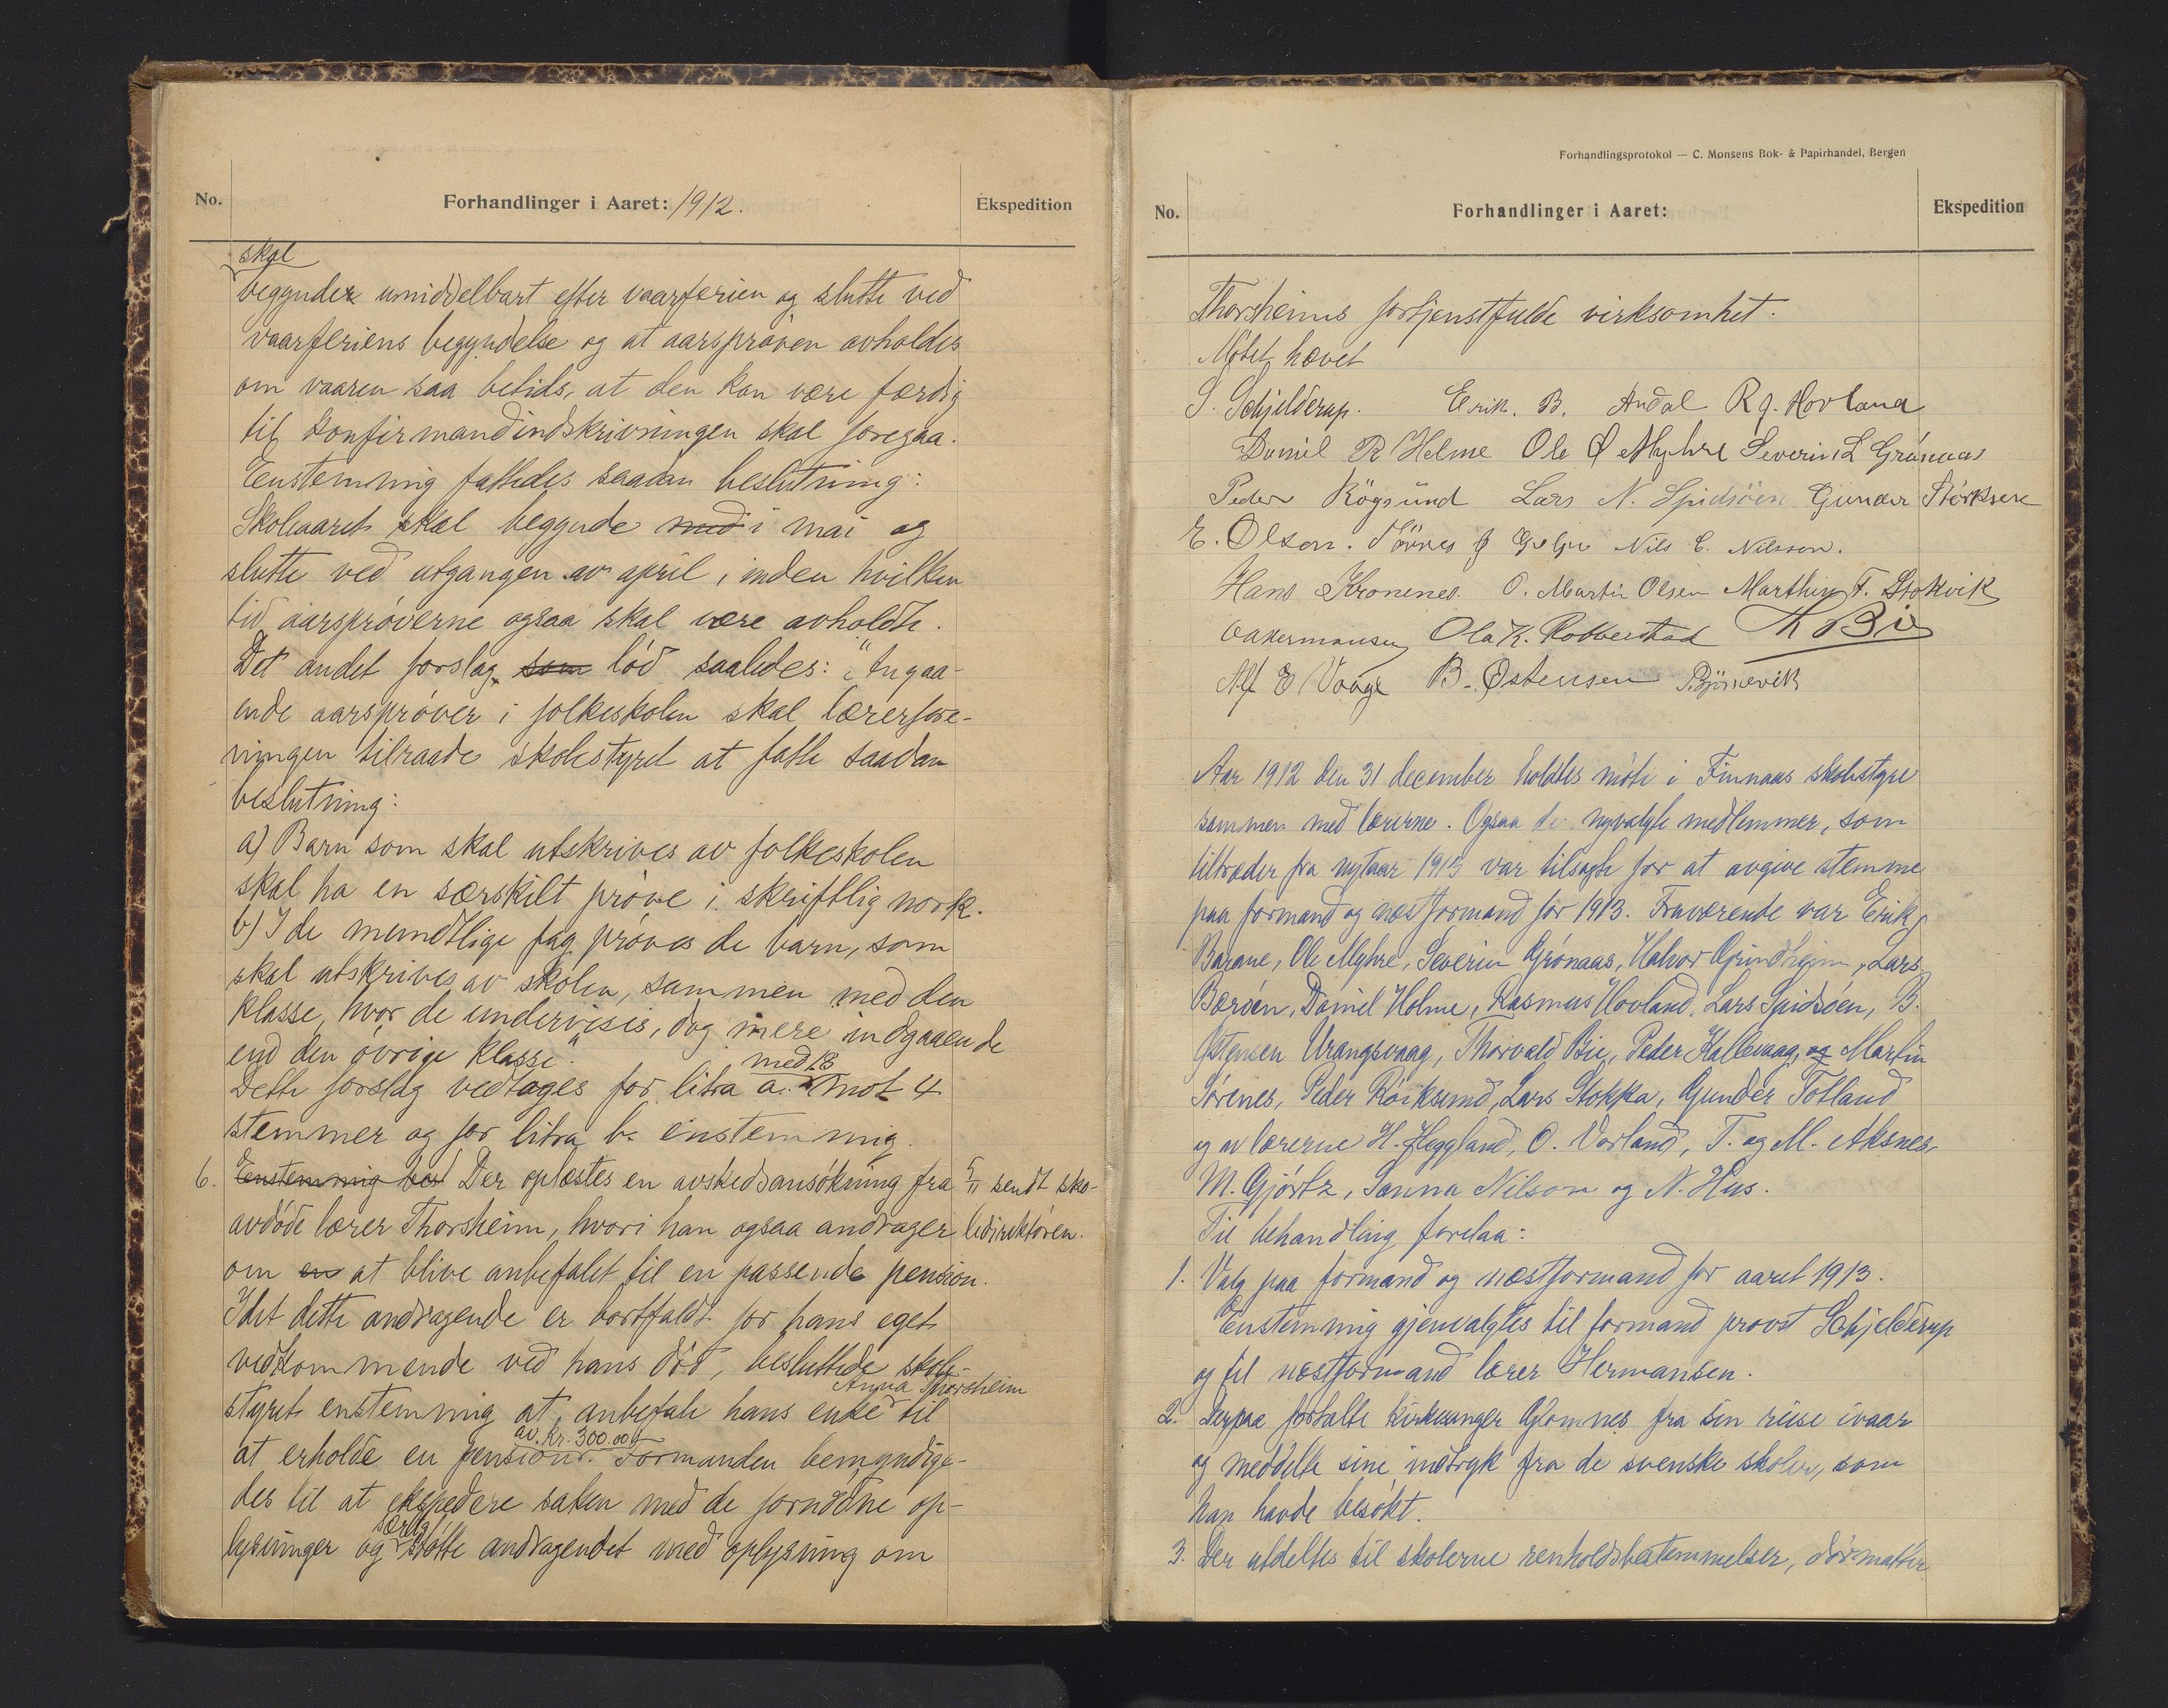 No.
Forhandlinger i Aaret: 1912.
Ekspedition
skal
begynder umiddelbart efter vaarferien og slutte ved
vaarferiens begyndelse og at aarsprøven avholdes
om vaaren saa betids, at den kan være færdig
til konfirmandindskrivningen skal foregaa.
Eenstemmig fattedes saadan beslutning:
Skoleaaret skal begynde med i mai og
slutte ved utgangen av april, inden hvilken
tid aarsprøverne ogsaa skal være avholdte.
Det andet forslag som lød saaledes: "Angaa-
ende aarsprøver i folkeskolen skal lærerfore-
ningen tilraade skolestyret at fatte saadan
beslutning:
a) Barn som skal utskrives av folkeskolen
skal ha en særskilt prøve i skriftlig norsk.
b) I de mundtlige fag prøves de barn, som
skal utskrives av skolen, sammen med den
klasse, hvor de undervises, dog mere indgaaende
end den øvrige klasse."
med 18
Dette forslag vedtages for litra a. mot 4
stemmer og for litra b. enstemmig.
6. Eenstemmig bes Der oplæstes en avskedsansøkning fra
5/11 sendt sko-
avdøde lærer Thorsheim, hvori han ogsaa andrager
ledirektøren.
om en at blive anbefalet til en passende pension.
Idet dette andragende er bortfaldt for hans eget
vedkommende ved hans død, besluttede skole-
Anna Thorsheim
styret enstemmig at anbefale hans enke til
av kr. 300.00
at erholde en pension. Formanden bemyndige-
des til at ekspedere saken med de fornødne op-
særlig
lysninger og støtte andragendet med oplysning om
Forhandlingsprotokol — C. Monsens Bok- & Papirhandel, Bergen
No.
Forhandlinger i Aaret:
Ekspedition
Thorsheims fortjenstfulde virksomhet.
Møtet hævet
S. Schjelderup. Erik. B. Andal R J. Hovland
Daniel R Helme Ole Ø Myhre Severin L Grønaas
Peder Rögsund Lars N. Spidsöen Gunder Störksen
E. Olsen. Nils C. Nilsson.
Hans Kronenes. O. Martin Olsen Marthin T. Stokvik
Ola K. Robberstad Th Bie
Alf E Vaage B. Østensen P. Bjönevik
Aar 1912 den 31 december holdtes møte i Finnaas skolestyre
sammen med lærerne. Ogsaa de nyvalgte medlemmer, som
tiltræder fra nytaar 1913 var tilsagte for at avgive stemme
paa formand og næstformand for 1913. Fraværende var Erik
Barane, Ole Myhre, Severin Grønaas, Halvor Grindheim, Lars
Bærøen, Daniel Holme, Rasmus Hovland, Lars Spidsøen, B.
Østensen Urangsvaag, Thorvald Bie, Peder Kallevaag, og Martin
Sørenes, Peder Røiksund, Lars Stokka, Gunder Totland
og av lærerne H. Heggland, O. Vorland, T. og M. Aksnes,
M. Gjørtz, Sanna Nilson og N. Hus.
Til behandling forelaa:
1. Valg paa formand og næstformand for aaret 1913.
Enstemmig gjenvalgtes til formand provst Schjelderup
og til næstformand lærer Hermansen.
2. Derpaa fortalte kirkesanger Glomnes fra sin reise ivaar
og meddelte sine indtryk fra de svenske skoler, som
han havde besøkt.
3. Der utdeltes til skolerne renholdsbestemmelser, dørmatter